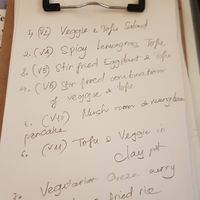 1, (V2) Veggie & Tofu Salad
2. (V4) Spicy Lemongrass Tofu
3. (V5) Stir fried Eggplant & Tofu
4. (V8) Stir fried combination
of veggie & tofu
5. (V10) Mushroom &
pancake
6. (V11) Tofu & Veggie in
clay pot
Vegetarian Cheeze curry
fried rice